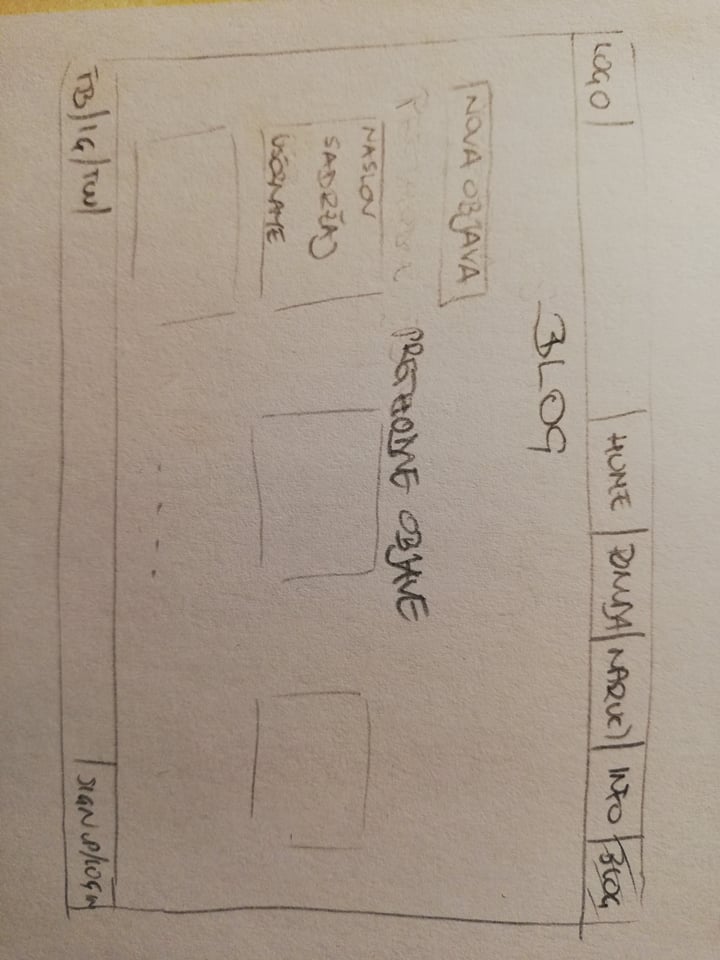 LOGO HOME PONUDA NARUČI INFO BLOG
BLOG
NOVA OBJAVA
PRETHODNE OBJAVE
NASLOV
SADRŽAJ
USERNAME
FB/IG/TW/ SIGN UP/LOGIN